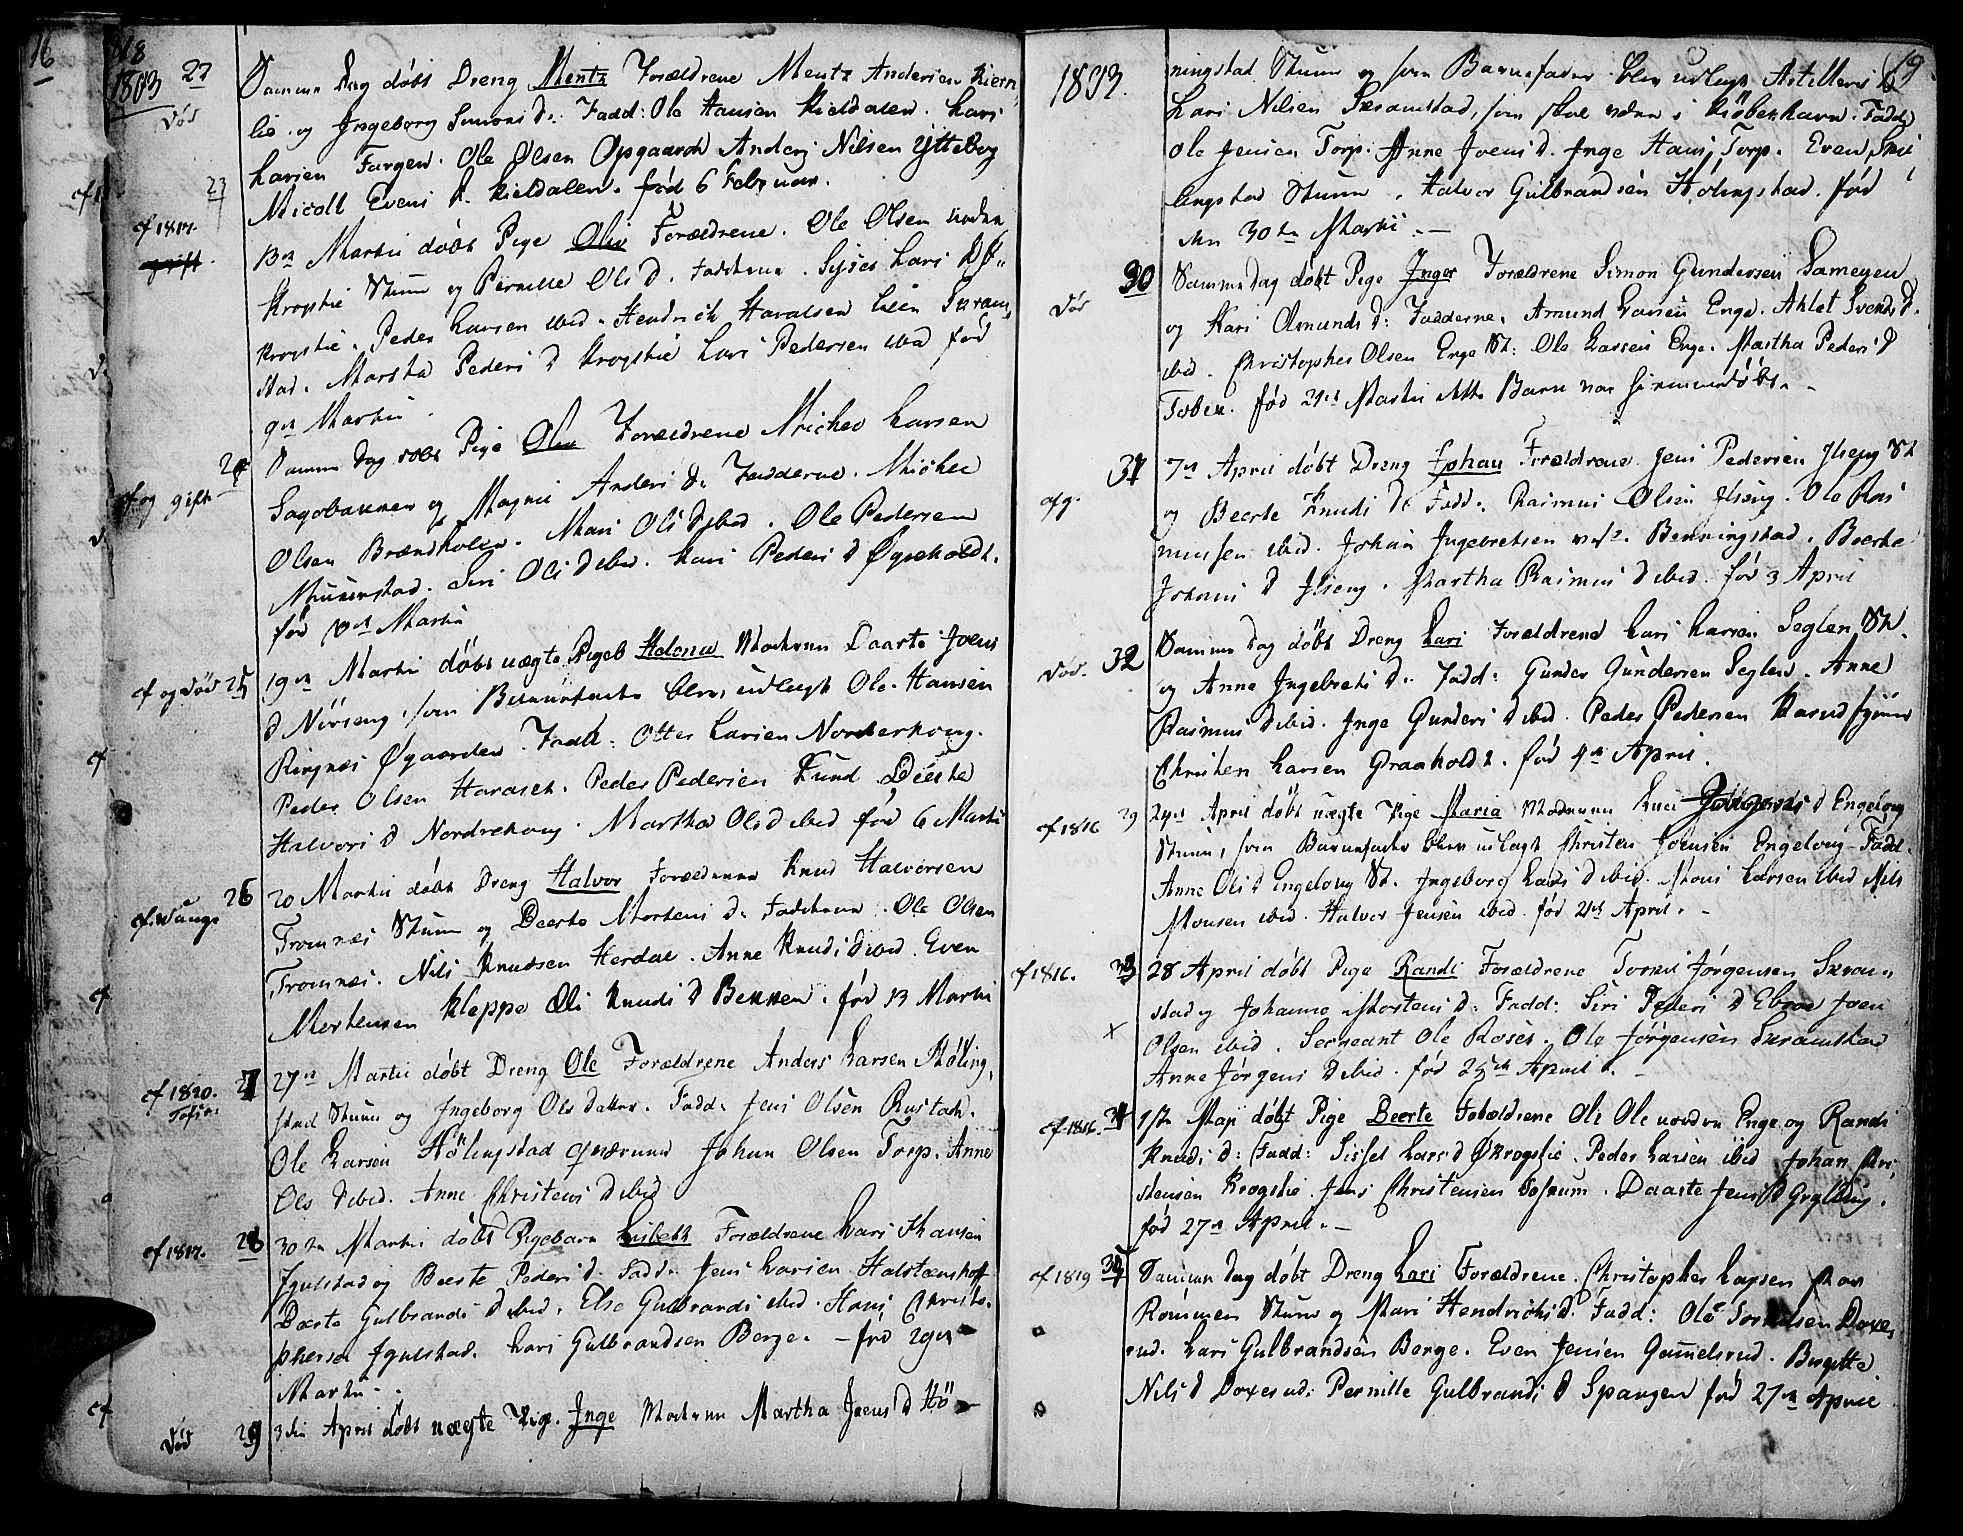 16
18
1803
22
død
Samme Dag döbt Dreng Mentz Forældrene Mentz Andersen Kiern
lie og Ingeborg Simons d: Fadd: Ole Hansen Kieldalen. Lars
Larsen Furgen. Ole Olsen Opgaard Anders Nilsen Ytteborg
Nicoll Evens d. Kieldalen. fød 6 Februar.
23
cf 1817.
13de Martii döbt Pige Oliv Forældrene. Ole Olsen
Krogslie Stuen og Pernille Ols d. Fadderne. Sisel Lars D
Krogslie. Peder Larsen ibid. Hendrich Haralsen Lien Skram
stad. Martha Peders d Krogslie Lars Pedersen ibid fød
9de Martii.
24
cf og gift
Samme Dag döbt Pige Oliv Forældrene Michel Larsen
Sagbakken og Magni Anders d. Fadderne. Michel
Olsen Brændholen. Mari Ols d ibid. Ole Pedersen
Muuerstad. Siri Ols d ibid. Kari Peders d Øgieholdt.
fød 10de Martii
cf og død 25
19de Martii döbt uægte Pigeb Helena Moderen Daarte Joens
d Nörseng, som Barnefader blev udlagt Ole Hansen
Ringnæs Øgaarden. Fadd: Otter Larsen Norderhoug.
Peder Olsen Haraset. Peder Pedersen Lund Dorthea
Halvors d Nordrehoug. Martha Ols d ibid fød 6 Martii
26
cf. Vangs
20 Martii döbt Dreng Halvor Forældrene Knud Halvorsen
Tromnæs Stuen og Daarte Mortens d. Fadderne. Ole Olsen
Tromnæs. Nils Knudsen Herdal. Anne Knuds d ibid. Even
Mortensen Kleppe Oli Knuds d Bekken. fød 13 Martii
cf 1820. 27
27de Martii döbt Dreng Ole Forældrene Anders Larsen Höling,
stad Stuen og Ingeborg Ols datter. Fadd: Jens Olsen Rustad.
Ole Larsen Hölingstad qværnen Johan Olsen Torp. Anne
Ols d ibid. Anne Christens d ibid
cf 1817. 28
30te Martii döbt Pigebarn Lisbeth Forældrene Lars Hansen
Igulstad og Beerte Peders d. Fadd. Jens Larsen Halstenshof
Daarte Gulbrands d ibid. Else Gulbrands ibid. Hans Christo-
phersen Igulstad. Lars Gulbrandsen Berge. – fød 29de
Martii.
død 29
3die April döbt uægte Pige. Inge Moderen Martha Joens d Hö
1803.
19.
ningstad Stuen og som Barnefader blev udlagt Artillerist
Lars Nilsen Skramstad, som skal være i Kiöbenhavn. Fadd
Ole Jensen Torp. Anne Joens d. Inge Hans d Torp. Even Smi
lingstad Stuen. Halvor Gulbrandsen Hölingstad. fød
den 30te Martii. –
30
død
Samme Dag döbt Pige Inger Forældrene Simon Gundersen Sameyen
og Kari Amunds d: Fadderne. Amund Larsen Enge. Ahlet Svends d.
ibid. Christopher Olsen Enge St: Ole Larsen Enge. Martha Peders d
Toben. fød 21de Martii dette Barn var hiemmedöbt. –
31
cf g.
7de April döbt Dreng Johan Forældrene Jens Pedersen Ilseng St
og Beerte Knuds d: Fadd: Rasmus Olsen Ilseng. Ole Ras
mussen ibid. Johan Ingebretsen Benningstad. Beerte
Johans d Ilseng. Martha Rasmus d ibid. fød 3 April
død. 32
Samme Dag döbt Dreng Lars Forældrene Lars Larsen Seglen St.
og Anne Ingebrets d. Fadd: Gunder Gundersen Seglen. Anne
Rasmus d ibid. Inge Gunders d ibid. Peder Pedersen
Christen Larsen Graaholdt. fød 4de April.
cf 1816
24de April döbt uægte Pige Maria Moderen d Engeloug
Stuen, som Barnefader blev udlagt Christen Joensen Engeloug Fadd.
Anne Ols d Engeloug St. Ingeborg Lars d ibid. Mons Larsen ibid Nils
Monsen ibid. Halvor Jensen ibid. fød 21de April. –
cf 1816. 33
28 April döbt Pige Randi Forældrene Torkil Jörgensen Skram,
stad og Johanne Mortens d: Fadd: Siri Peders d Ebroe Joen
Olsen ibid. Sergeant Ole Roset. Ole Jörgensen Skramstad
Anne Jörgens d ibid. fød 25de April. –
x
cf 1816. 34
1ste Maji döbt Pige Beerte Forældrene Ole Ole Enge og Randi
Knuds d: Fadd: Sissel Lars d Krogslie. Peder Larsen ibid Johan Chri
stensen Krogslie. Jens Christensen Tosrum. Daarte Jens d Grylling.
fød 27de April. –
cf 1819 35
Samme Dag döbt Dreng Lars Forældrene. Christopher Larsen
Rommen Stuen og Mari Hendrichs d. Fadd: Ole Torkelsen Doxe,
rud. Lars Gulbrandsen Berge. Even Jensen Gammelsrud. Birgitte
Nils d Doxerud. Pernille Gulbrands d Spangen fød 27de April